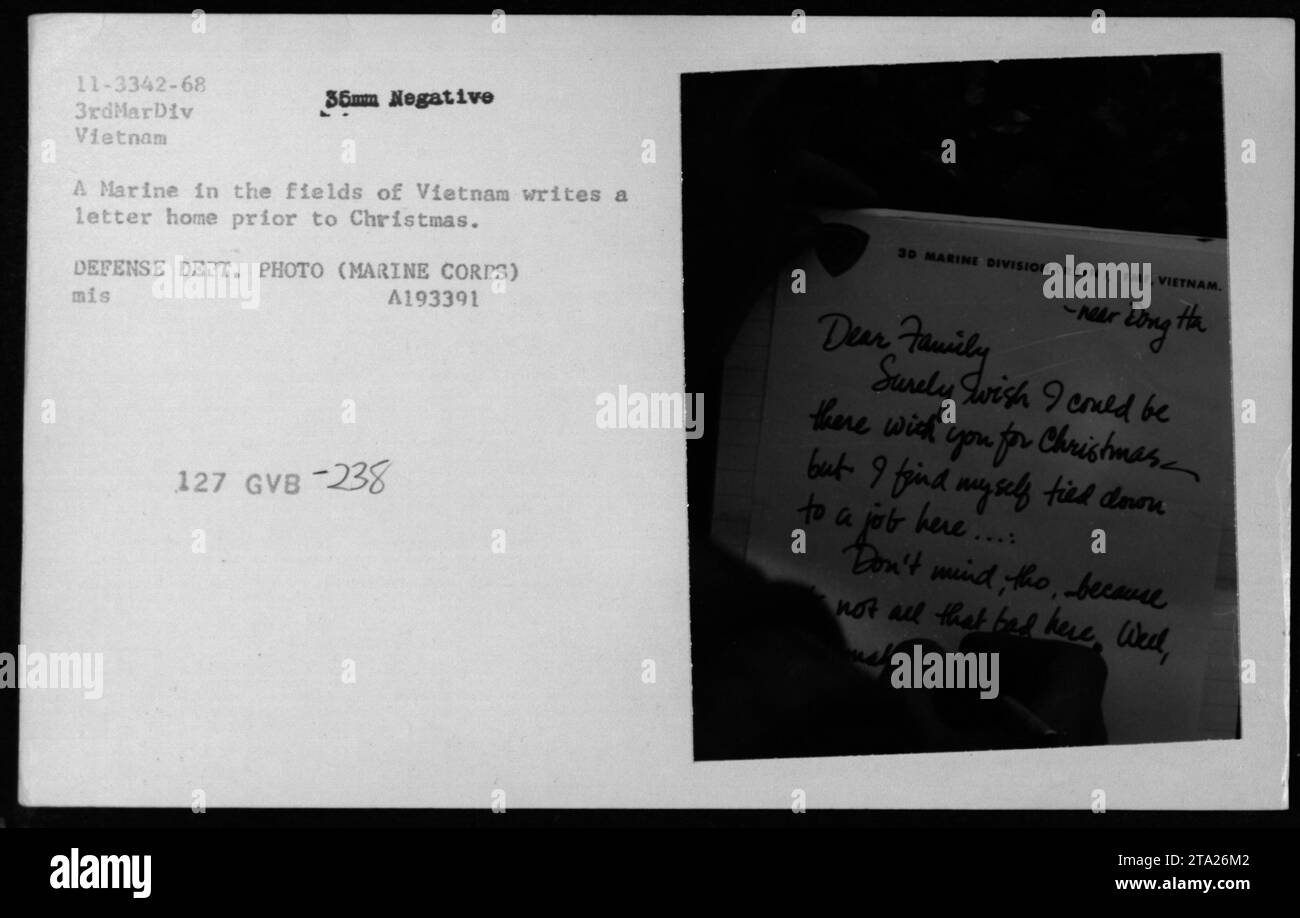 11-3342-68
3rdMarDiv
Vietnam
35mm Negative
A Marine in the fields of Vietnam writes a
letter home prior to Christmas.
DEFENSE DEPT. PHOTO (MARINE CORPS)
mis A193391
127 GVB -238
3D MARINE DIVISION VIETNAM.
- near Ha
Dear Family
Surely wish I could be
there with you for Christmas
but I find myself tied down
to a job here ....
Don't mind, tho, because
not all that bad here. Well,
a
alamy
alamy
Image ID: 2TA26M2
www.alamy.com